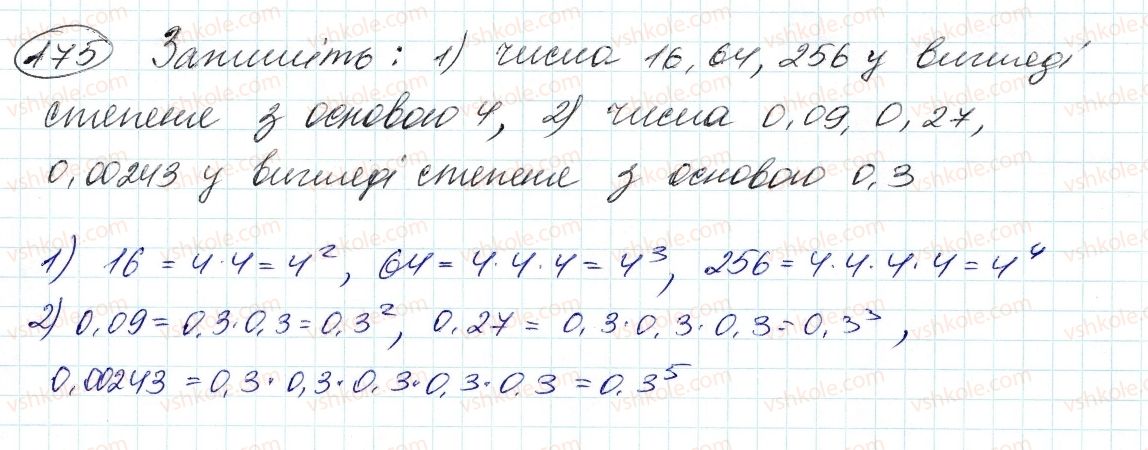 175 Запишіть: 1) числа 16, 64, 256 у вигляді
степеня з основою 4, 2) числа 0,09, 0,27,
0,00243 у вигляді степеня з основою 0,3
1) 16 = 4·4 = 4², 64 = 4·4·4 = 4³, 256 = 4·4·4·4 = 4⁴
2) 0,09 = 0,3·0,3 = 0,3², 0,27 = 0,3·0,3·0,3 = 0,3³,
0,00243 = 0,3·0,3·0,3·0,3·0,3 = 0,3⁵
vshkole.com